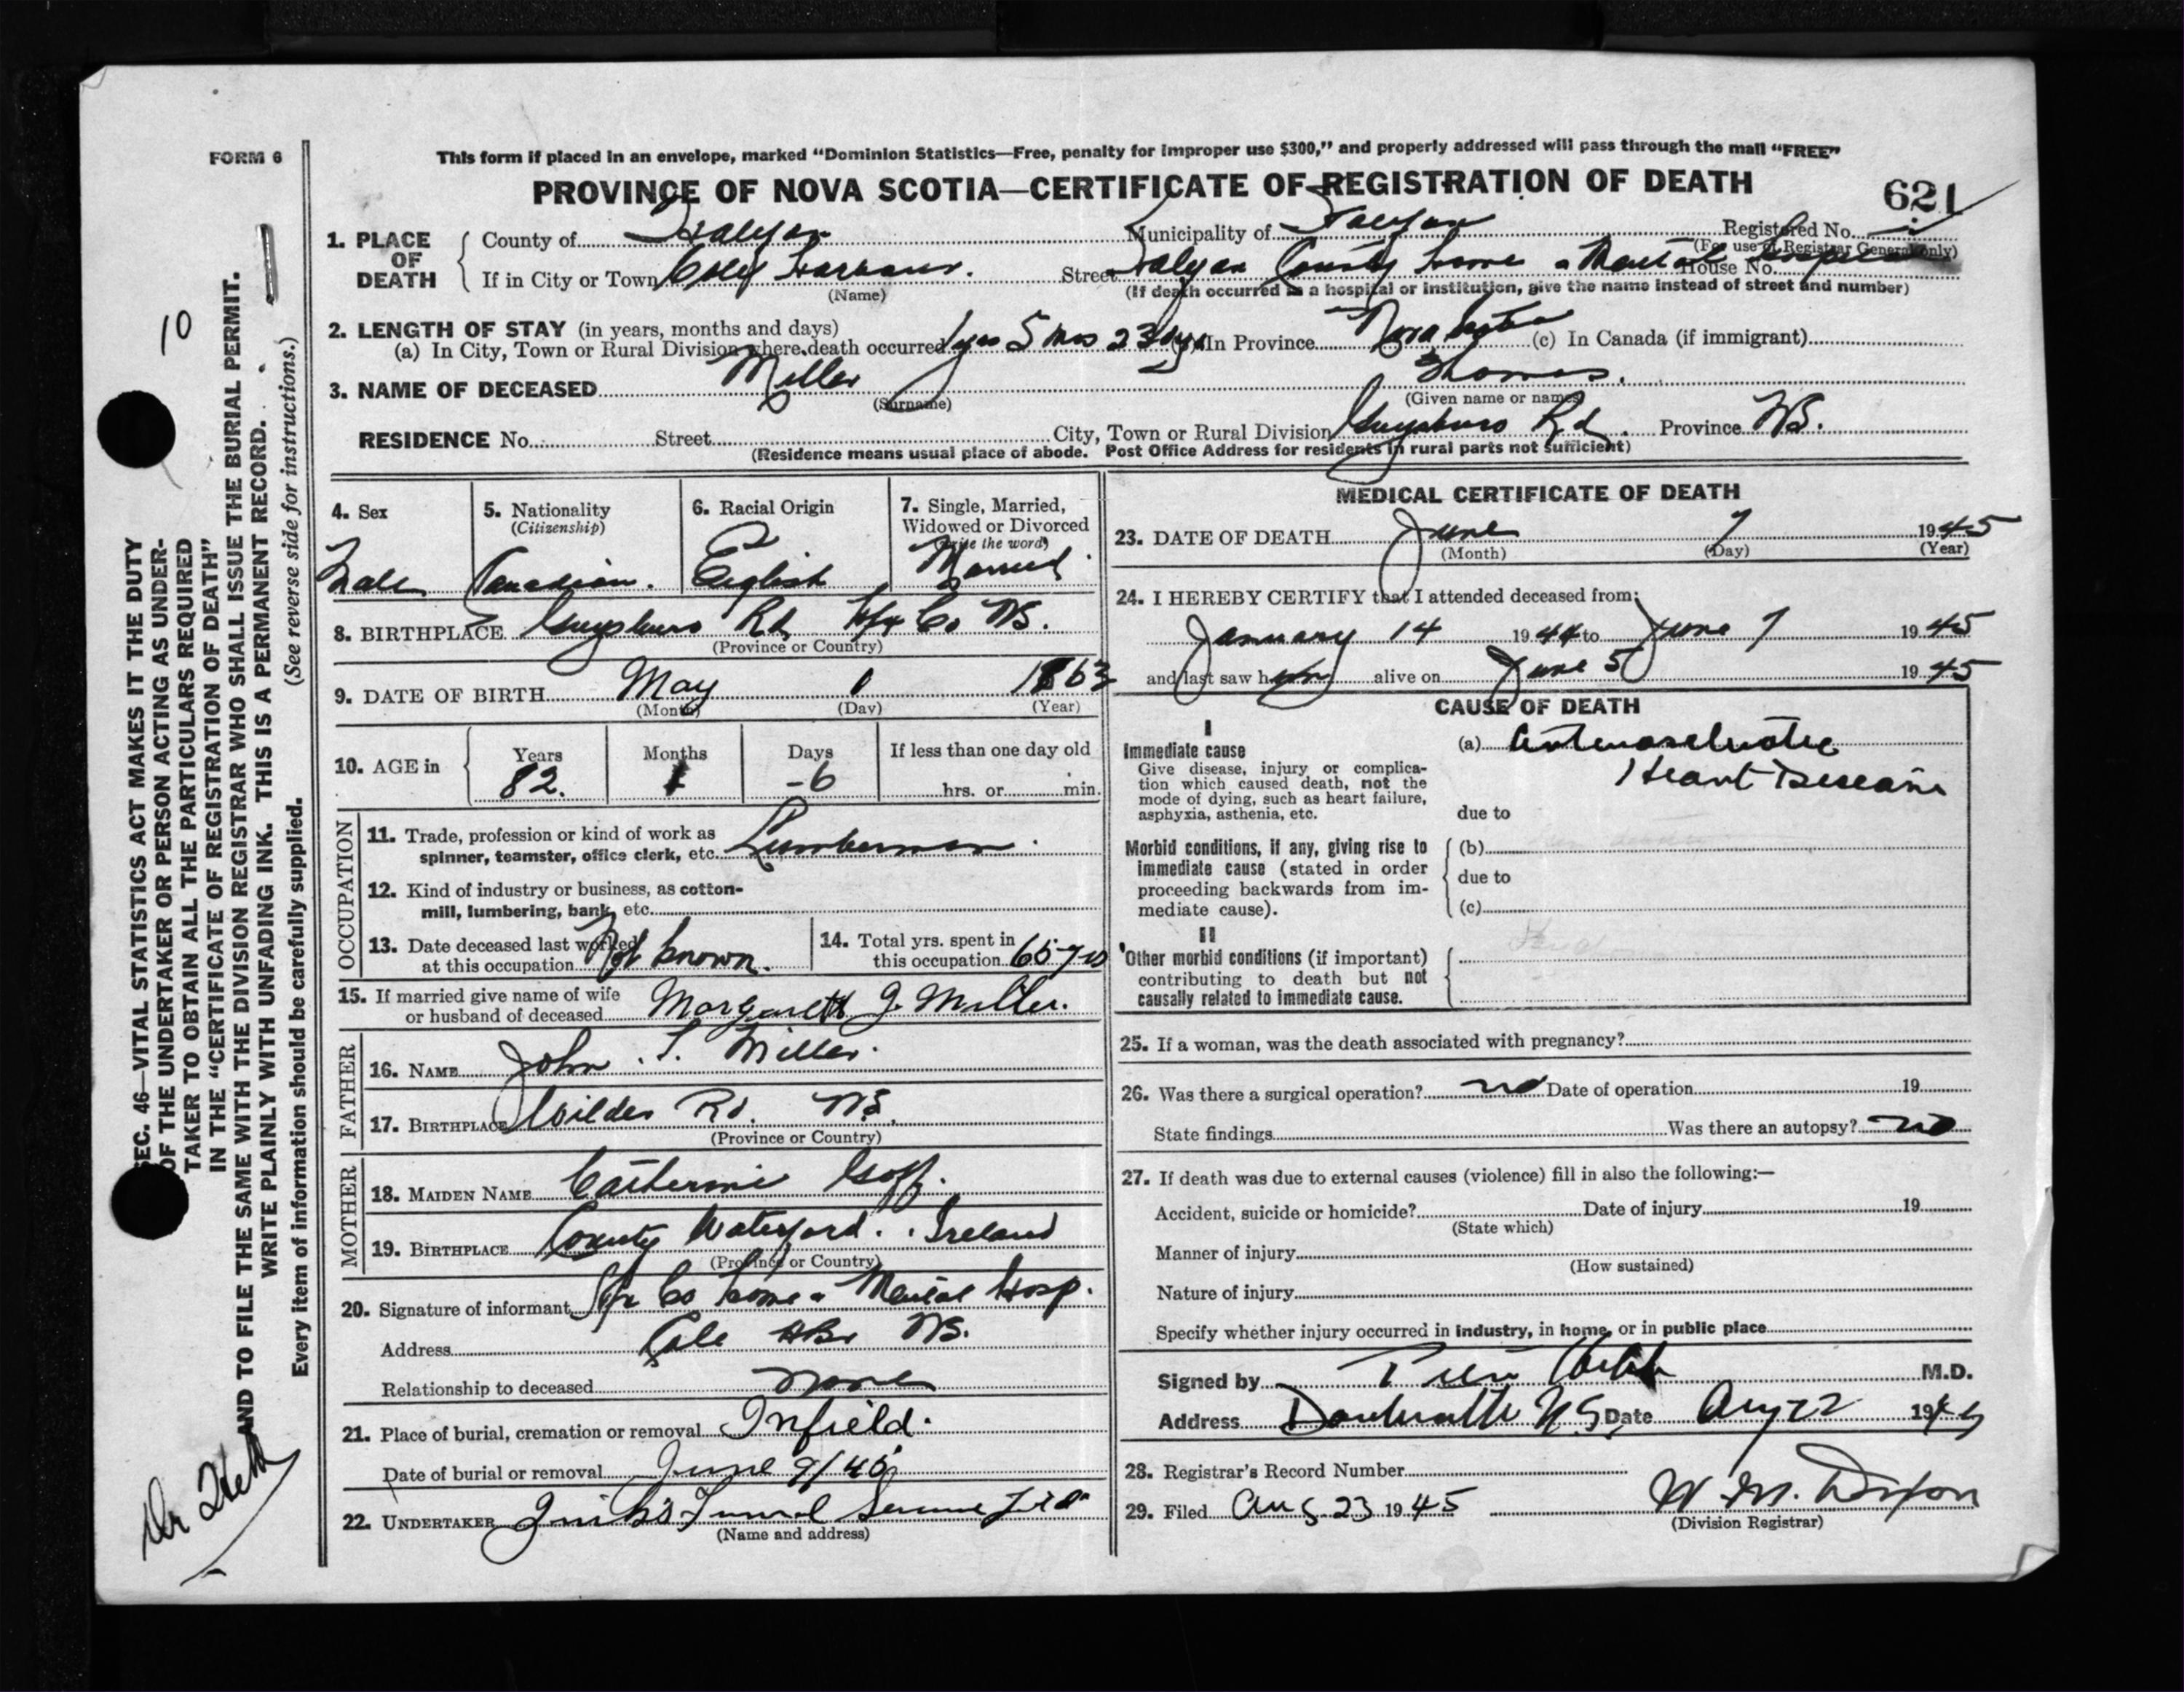 FORM 6
This form if placed in an envelope, marked “Dominion Statistics—Free, penalty for improper use $300,” and properly addressed will pass through the mail “FREE”
PROVINCE OF NOVA SCOTIA—CERTIFICATE OF REGISTRATION OF DEATH
621
1. PLACE OF DEATH
County of Halifax Municipality of Halifax Registered No.
(For use of Registrar General only)
If in City or Town Cole Harbour. Street Halifax County Home & Mental Hospital House No.
(Name) (If death occurred in a hospital or institution, give the name instead of street and number)
2. LENGTH OF STAY (in years, months and days)
(a) In City, Town or Rural Division where death occurred 1 yrs 5 mos 23 dys In Province Nova Scotia (c) In Canada (if immigrant)
3. NAME OF DECEASED Miller Thomas.
(Surname) (Given name or names)
RESIDENCE No. Street City, Town or Rural Division Guysboro Rd. Province NS.
(Residence means usual place of abode. Post Office Address for residents in rural parts not sufficient)
4. Sex
Male
5. Nationality
(Citizenship)
Canadian.
6. Racial Origin
English
7. Single, Married,
Widowed or Divorced
(write the word)
Married
8. BIRTHPLACE Guysboro Rd Hfx Co NS.
(Province or Country)
9. DATE OF BIRTH May 1 1863
(Month) (Day) (Year)
10. AGE in
Years Months Days If less than one day old
82. 1 -6 hrs. or min.
OCCUPATION
11. Trade, profession or kind of work as
spinner, teamster, office clerk, etc. Lumberman.
12. Kind of industry or business, as cotton-
mill, lumbering, bank, etc.
13. Date deceased last worked
at this occupation Not known.
14. Total yrs. spent in
this occupation 65 yrs
15. If married give name of wife
or husband of deceased Margaret J. Miller.
FATHER
16. NAME John . T. Miller.
17. BIRTHPLACE Wildes Rd. NS.
(Province or Country)
MOTHER
18. MAIDEN NAME Catherine Goff.
19. BIRTHPLACE County Waterford. Ireland
(Province or Country)
20. Signature of informant Hfx Co Home & Mental Hosp.
Address Cole Hbr NS.
Relationship to deceased None
21. Place of burial, cremation or removal Infield.
Date of burial or removal June 9/45
22. UNDERTAKER Funeral Service Ltd
(Name and address)
MEDICAL CERTIFICATE OF DEATH
23. DATE OF DEATH June 7 1945
(Month) (Day) (Year)
24. I HEREBY CERTIFY that I attended deceased from:
January 14 1944 to June 7 1945
and last saw him alive on June 5 1945
CAUSE OF DEATH
I
Immediate cause
Give disease, injury or complica-
tion which caused death, not the
mode of dying, such as heart failure,
asphyxia, asthenia, etc.
(a) Arteriosclerotic
Heart Disease
due to
Morbid conditions, if any, giving rise to
immediate cause (stated in order
proceeding backwards from im-
mediate cause).
(b)
due to
(c)
II
Other morbid conditions (if important)
contributing to death but not
causally related to immediate cause.
25. If a woman, was the death associated with pregnancy?
26. Was there a surgical operation? no Date of operation 19
State findings Was there an autopsy? no
27. If death was due to external causes (violence) fill in also the following:—
Accident, suicide or homicide? Date of injury 19
(State which)
Manner of injury
(How sustained)
Nature of injury
Specify whether injury occurred in industry, in home, or in public place
Signed by M.D.
Address Dartmouth N.S. Date Aug 22 1945
28. Registrar's Record Number
29. Filed Aug 23 1945 W. M. Dixon
(Division Registrar)
SEC. 46—VITAL STATISTICS ACT MAKES IT THE DUTY
OF THE UNDERTAKER OR PERSON ACTING AS UNDER-
TAKER TO OBTAIN ALL THE PARTICULARS REQUIRED
IN THE “CERTIFICATE OF REGISTRATION OF DEATH”
AND TO FILE THE SAME WITH THE DIVISION REGISTRAR WHO SHALL ISSUE THE BURIAL PERMIT.
WRITE PLAINLY WITH UNFADING INK. THIS IS A PERMANENT RECORD.
Every item of information should be carefully supplied. (See reverse side for instructions.)
10
Dr